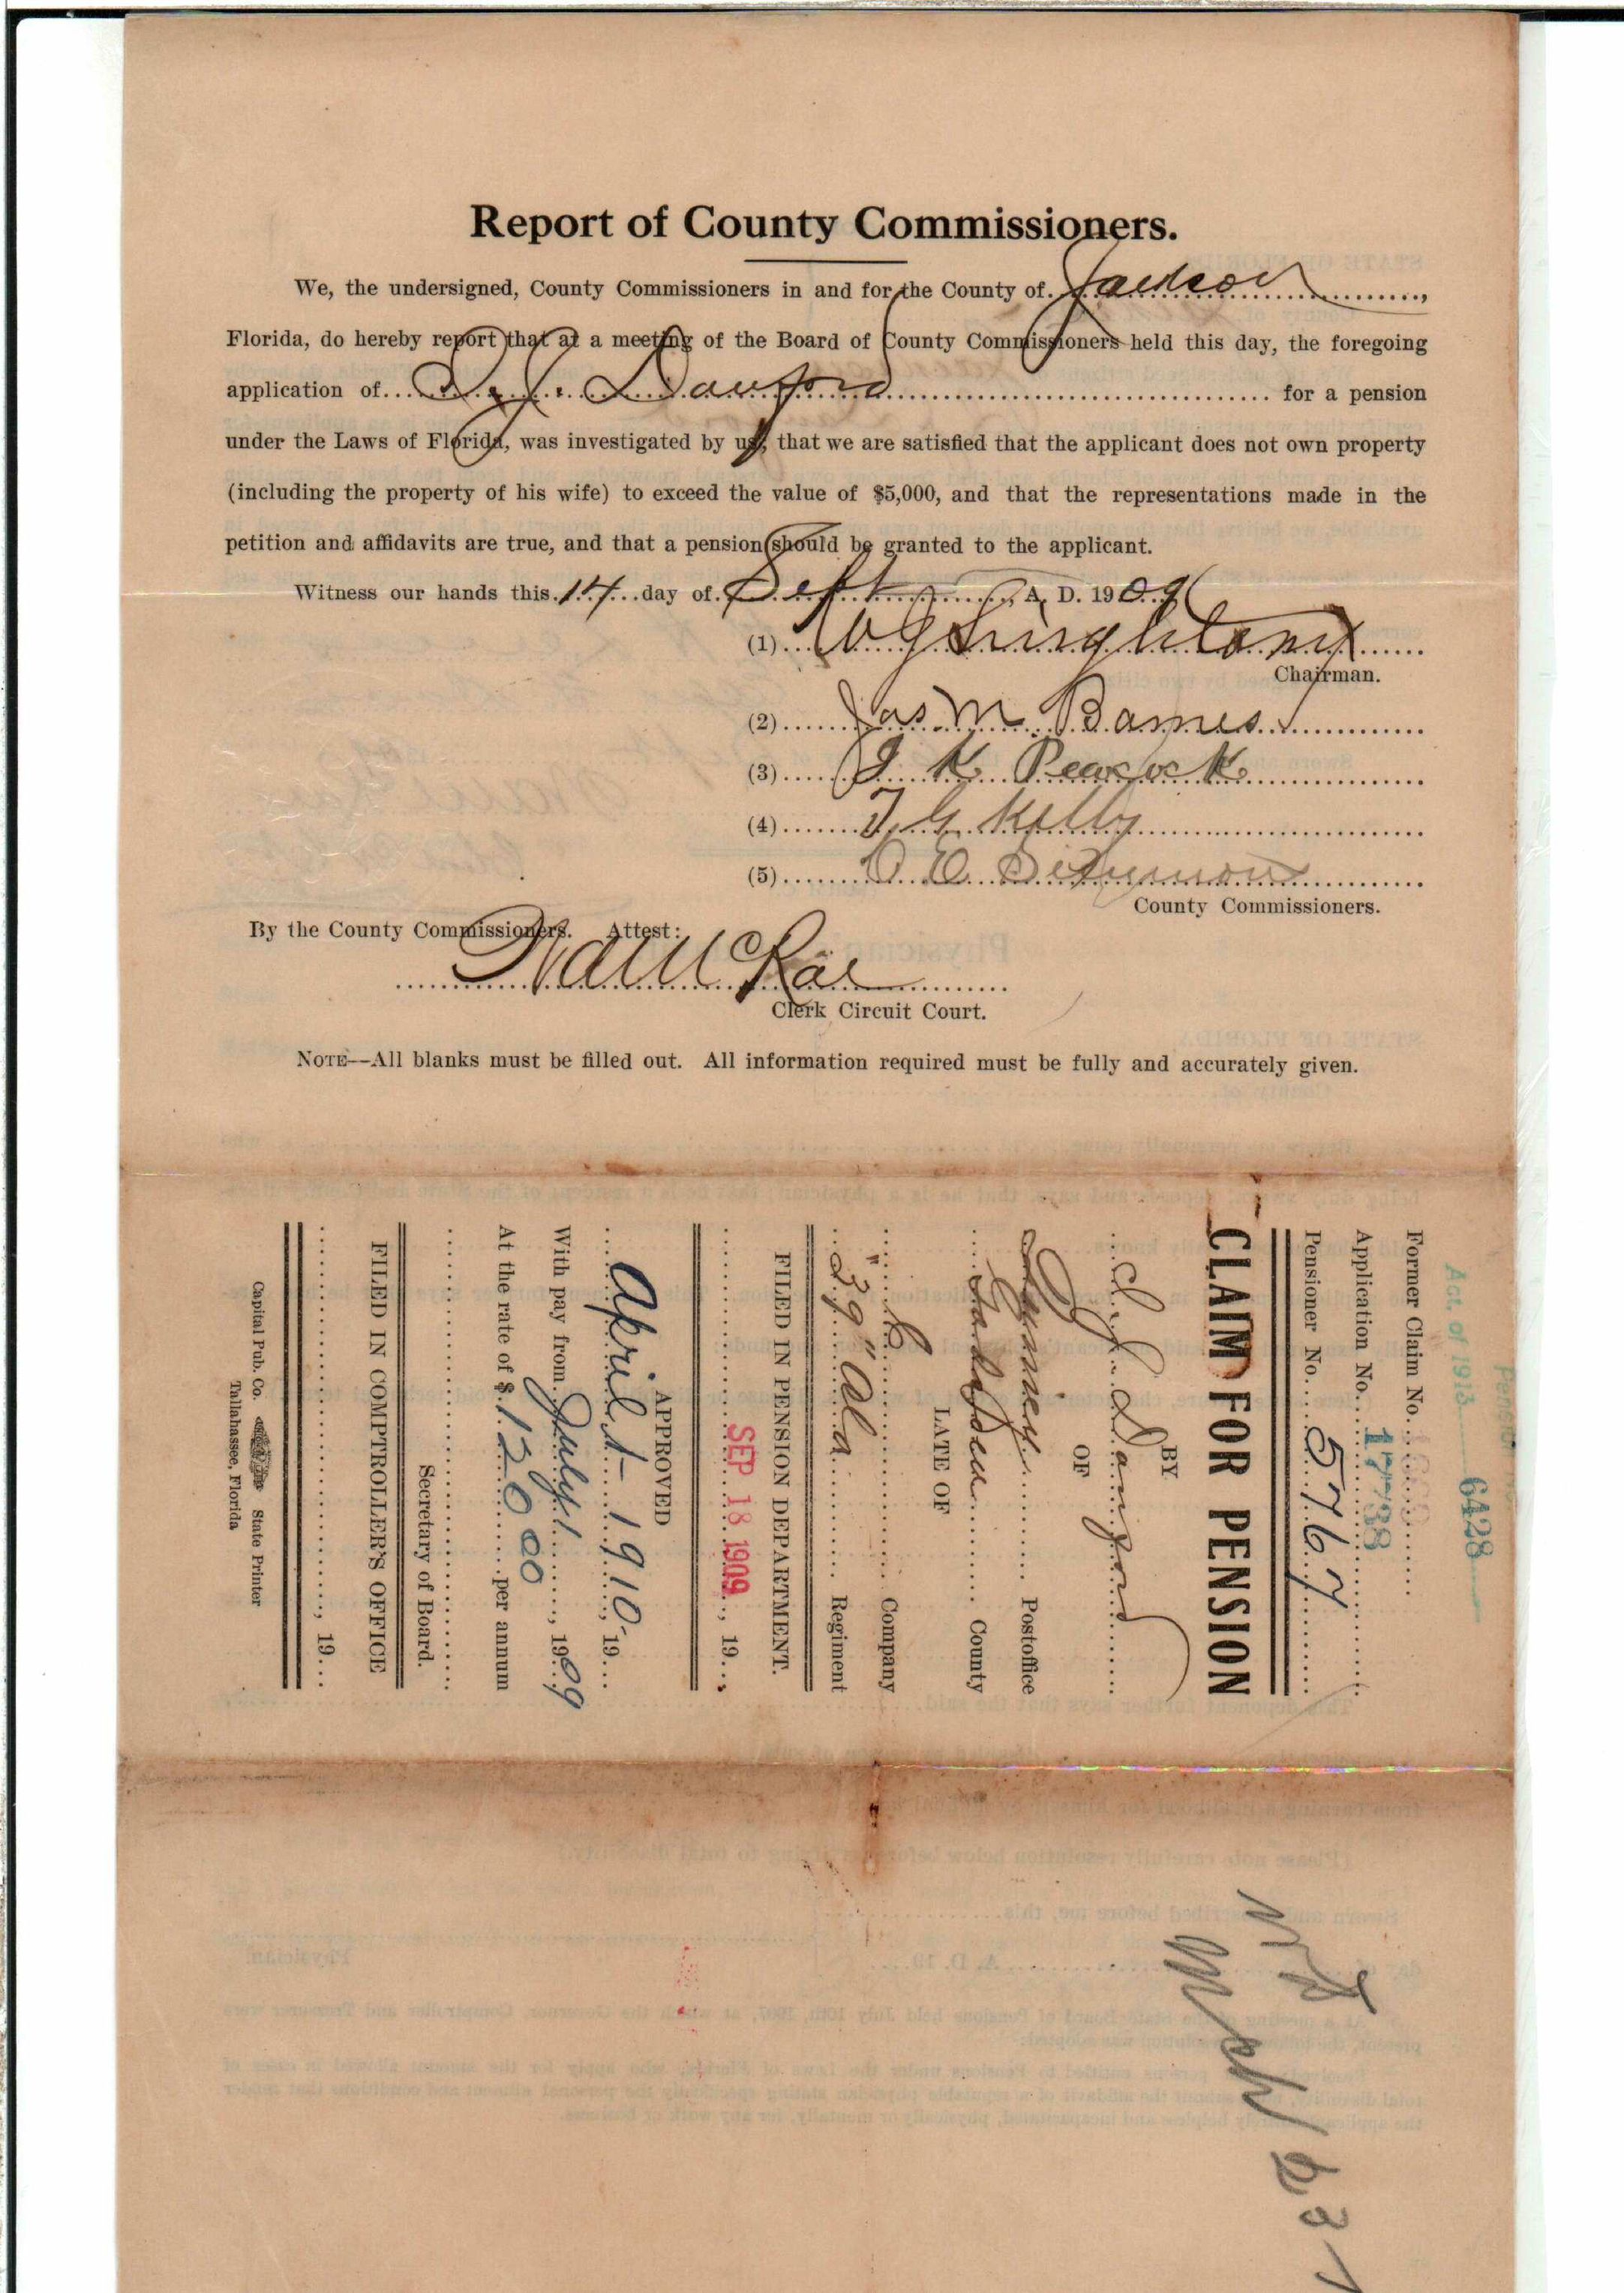 Report of County Commissioners.
We, the undersigned, County Commissioners in and for the County of. Jackson ,
Florida, do hereby report that at a meeting of the Board of County Commissioners held this day, the foregoing
application of... Danford ... for a pension
under the Laws of Florida, was investigated by us, that we are satisfied that the applicant does not own property
(including the property of his wife) to exceed the value of $5,000, and that the representations made in the
petition and affidavits are true, and that a pension should be granted to the applicant.
Witness our hands this 14 day of. Sept , A. D. 1909
(1)
Chairman.
(2) Jas. M. Barnes
(3) J K Peacock
(4) T G Kelly
(5)
County Commissioners.
By the County Commissioners. Attest:
McRae
Clerk Circuit Court.
NOTE—All blanks must be filled out. All information required must be fully and accurately given.
Pension No.
Act. of 1913 6428
Former Claim No.
Application No. 17738
Pensioner No. 5767
CLAIM FOR PENSION
BY
Danford
OF
Postoffice
County
LATE OF
Company
"39" Ala Regiment
FILED IN PENSION DEPARTMENT.
SEP 18 1909 , 19...
APPROVED
April 1 - 1910 , 19...
With pay from July 1 , 1909
At the rate of $ 120 00 per annum
Secretary of Board.
FILED IN COMPTROLLER'S OFFICE
, 19...
Capital Pub. Co. State Printer
Tallahassee, Florida